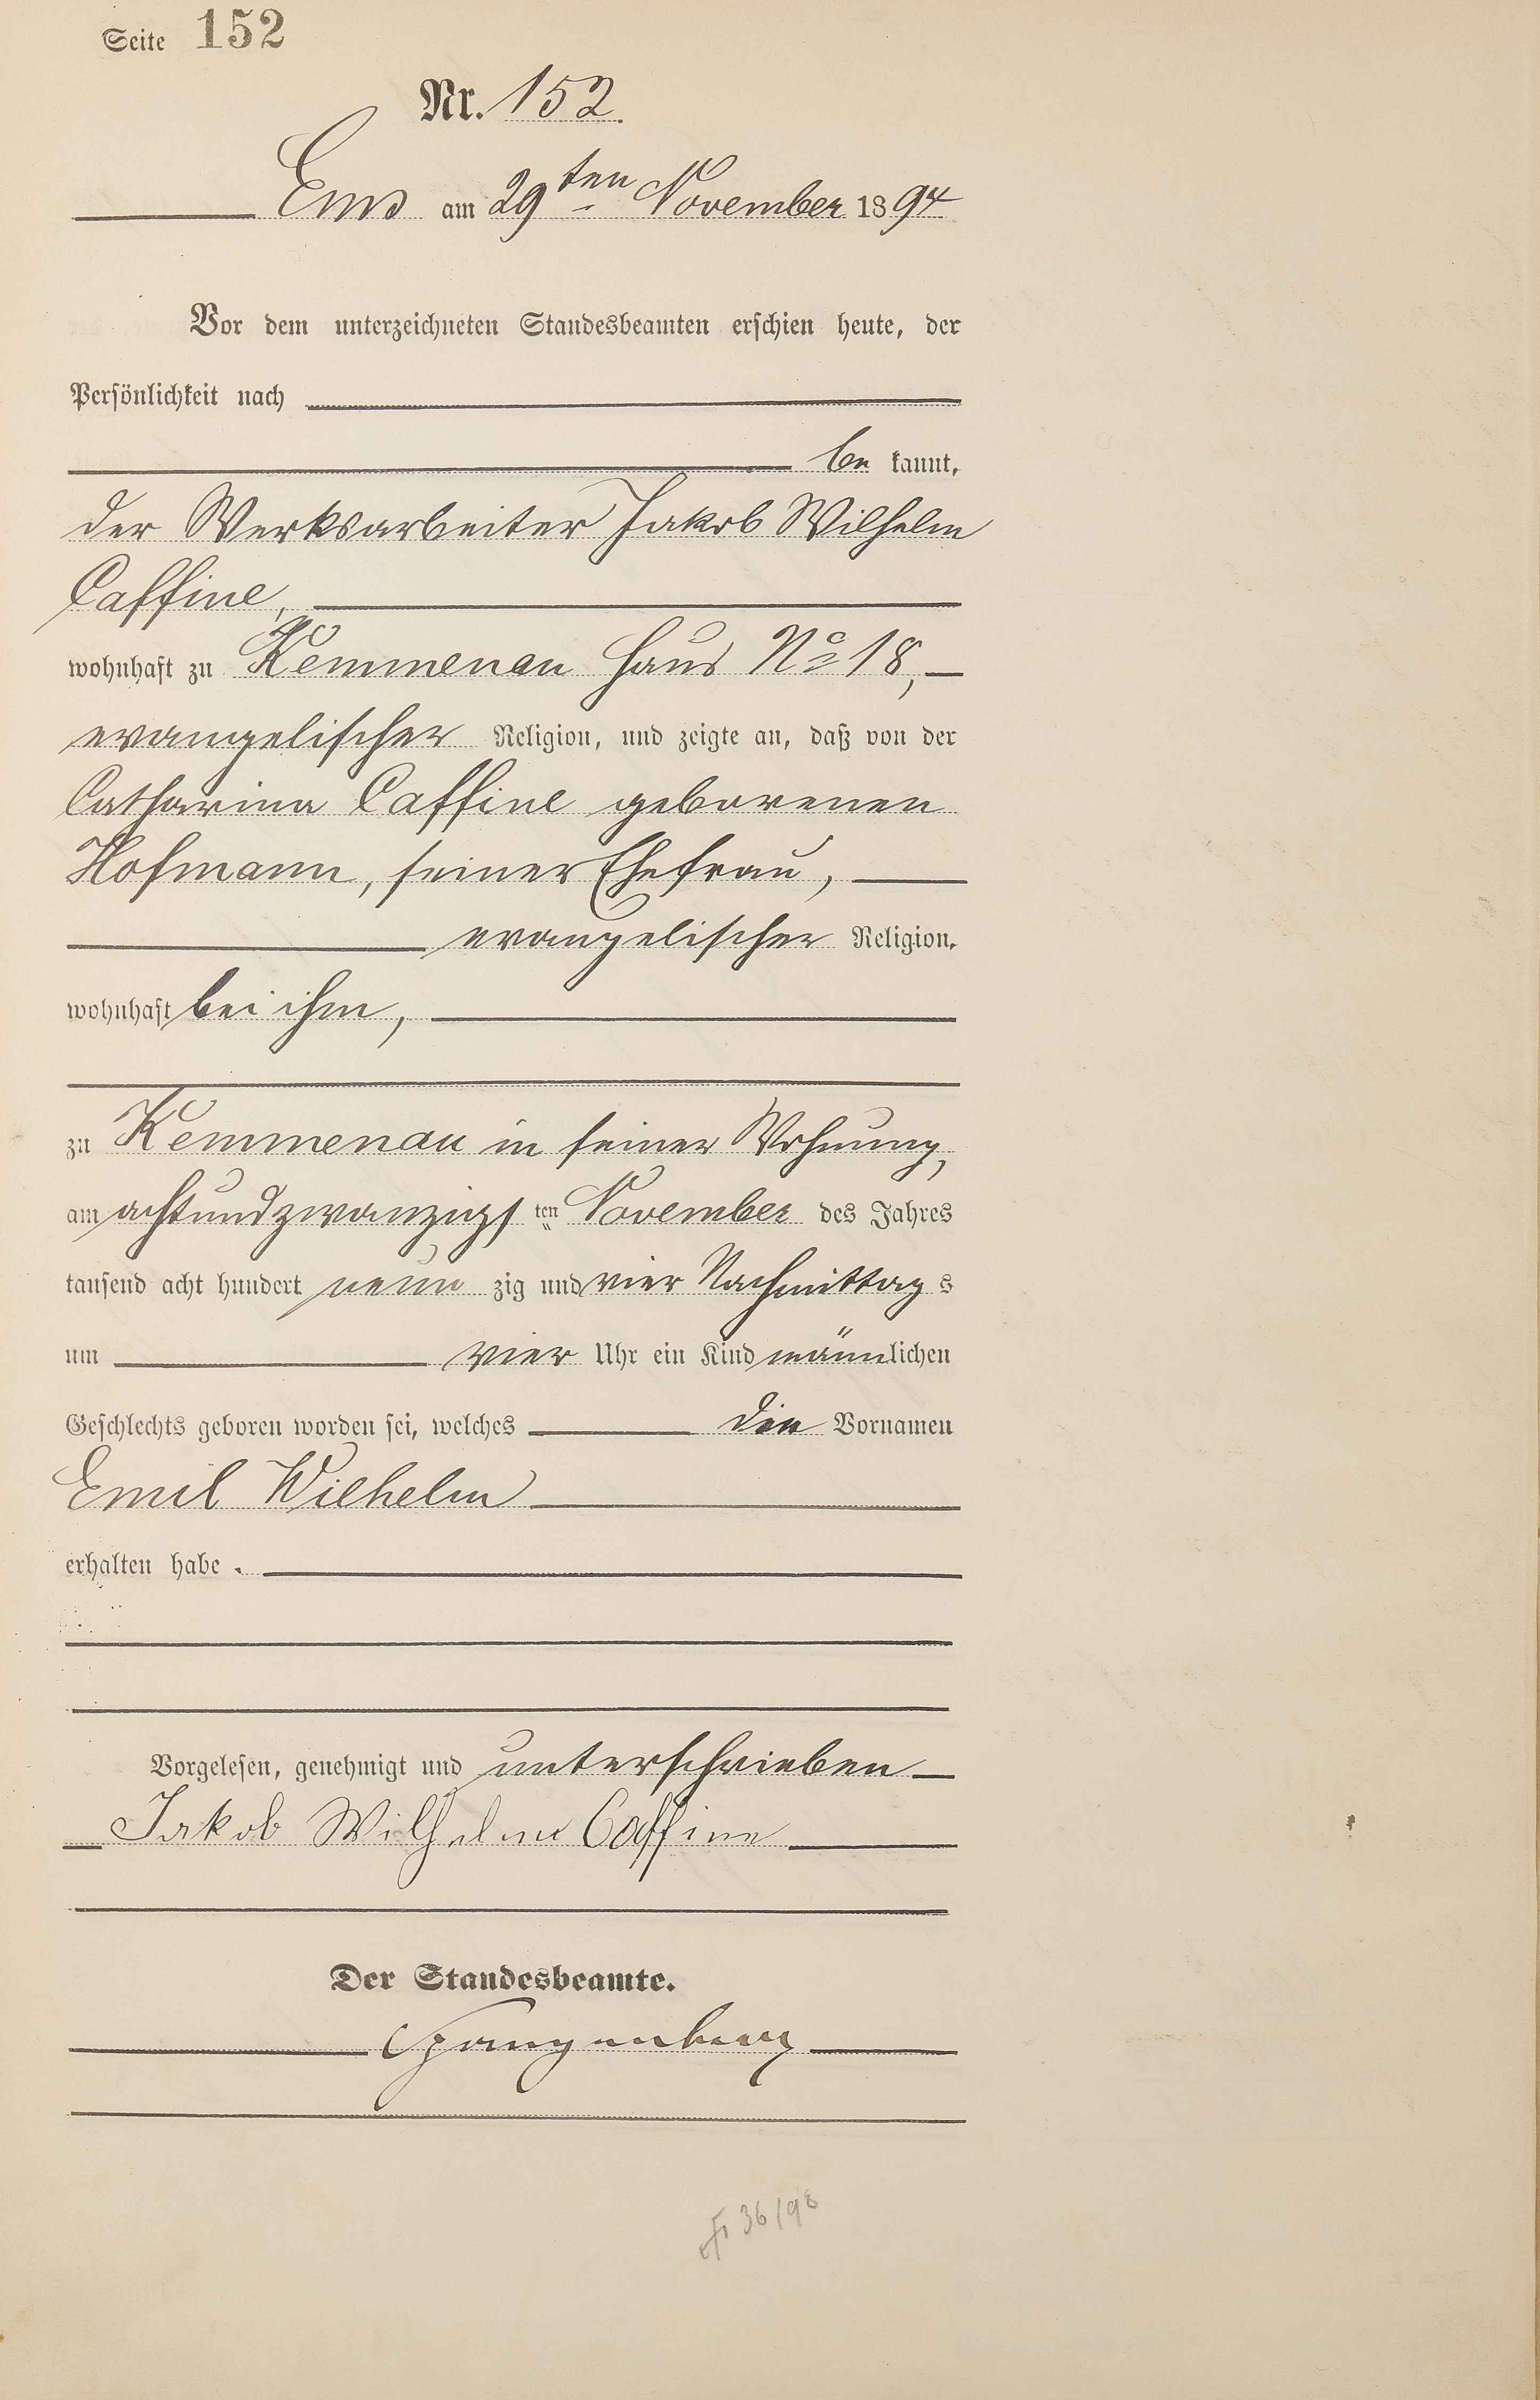 Seite 152
Nr. 152.
Ems am 29ten November 1894
Vor dem unterzeichneten Standesbeamten erschien heute, der
Persönlichkeit nach
be kannt,
der Werksarbeiter Jakob Wilhelm
Caffine,
wohnhaft zu Kemmenau Haus No 18,
evangelischer Religion, und zeigte an, daß von der
Catharina Caffine geborenen
Hofmann, seiner Ehefrau,
evangelischer Religion,
wohnhaft bei ihm,
zu Kemmenau in seiner Wohnung,
am achtundzwanzigs ten November des Jahres
tausend acht hundert neun zig und vier Nachmittag s
um vier Uhr ein Kind männlichen
Geschlechts geboren worden sei, welches die Vornamen
Emil Wilhelm
erhalten habe.
Vorgelesen, genehmigt und unterschrieben
Jakob Wilhelm Caffine
Der Standesbeamte.
Spangenberg
36/98